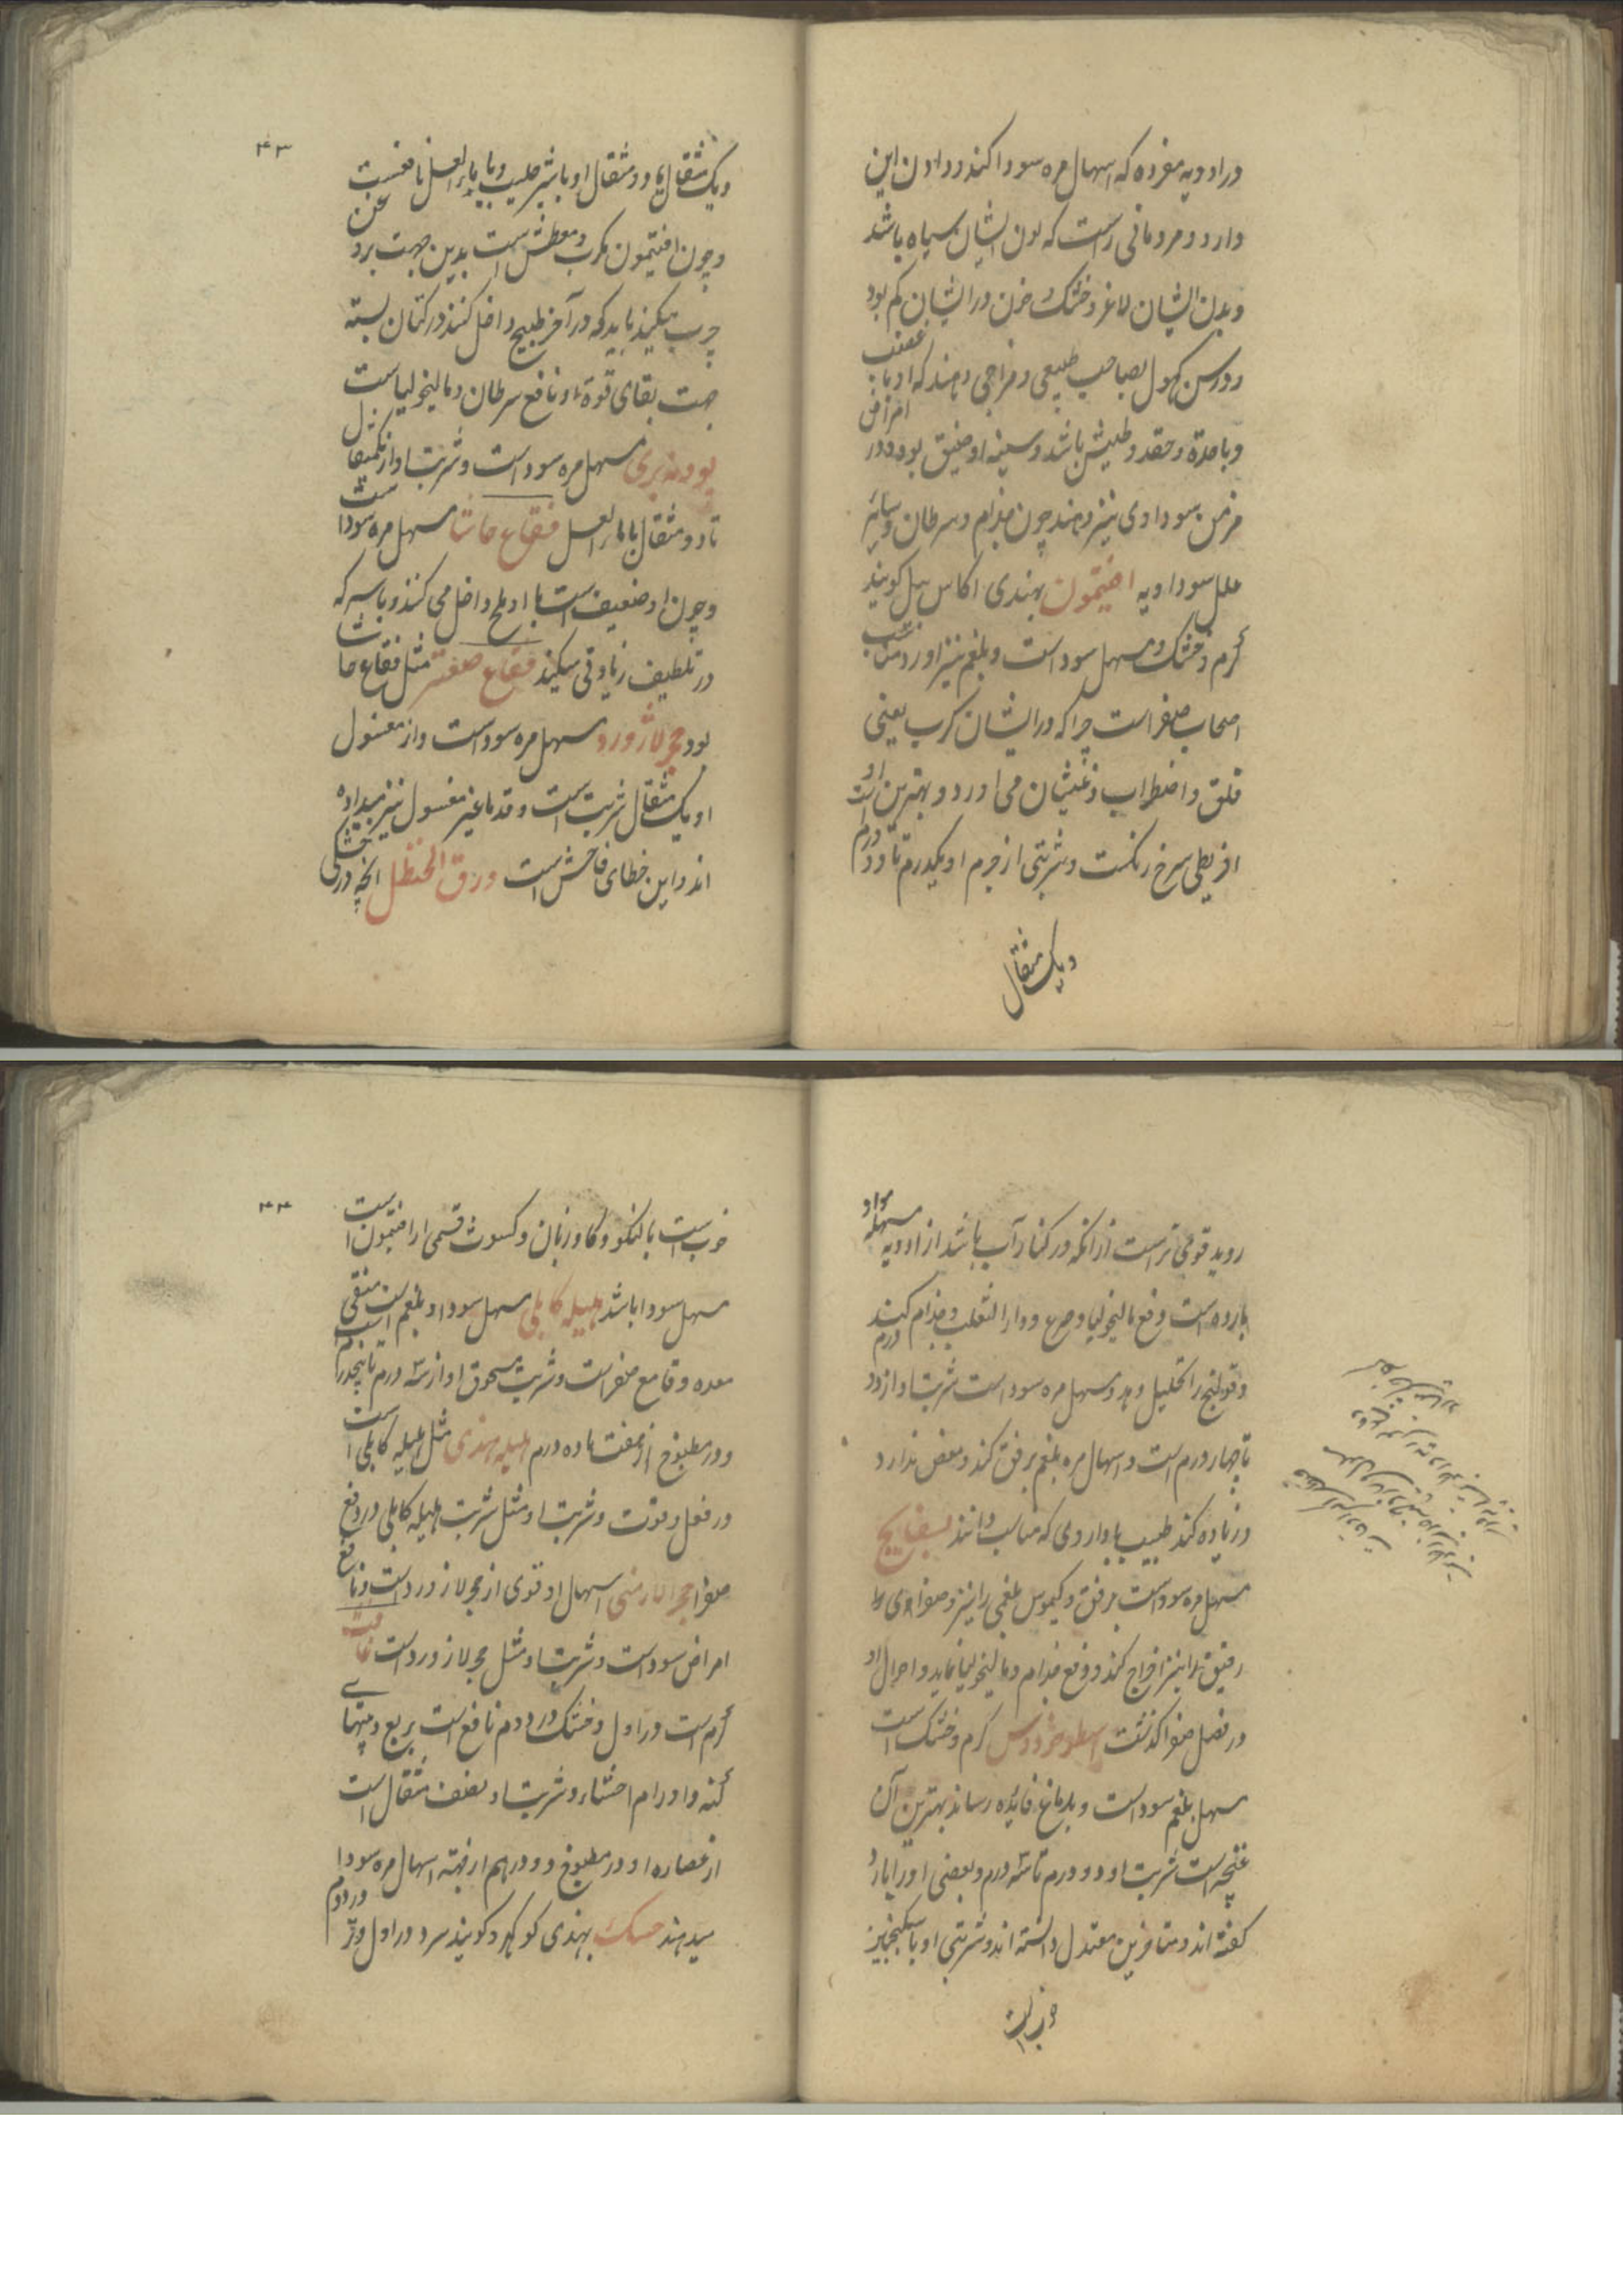 در ادویه مفرده که اسهال مره سودا کند و دادن این
دارو مردمانی راست که لون ایشان سیاه باشد
و بدن ایشان لاغر و خشک و خون در ایشان کم بود
و در سن کهول بصاحب طبیعی و مزاجی دهند که او با غضب
و با حدة و حقد و طیش باشد و سینه او ضیق بود و در امراض
مزمن سوداوی نیز دهند چون جذام و سرطان و سایر
علل سوداویه افتیمون بهندی اکاس بیل کویند
گرم و خشک و مسهل سوداست و بلغم نیز آورد
اصحاب صفراست چرا که در ایشان کرب یعنی
قلق و اضطراب و غثیان می اورد و بهترین او
اقریطی سرخ رنکست و شربتی از جرم او یکدرم تا دو درم
و یک مثقال
۴۳
و یک مثقال یا دو مثقال او با شیر حلیب و یا بماء العسل نافعست
و چون افتیمون مکرب و معطش است بدین جهت بروغن
چرب میکنند باید که در آخر طبیخ داخل کنند در کتان بسته
جهت بقای قوة او نافع سرطان و مالیخولیاست
پودنه بری مسهل مره سوداست و شربت او از یکمثقال
تا دو مثقال با ماء العسل فقاع حاشا مسهل مره سودا ست
و چون او ضعیف است با او ملح داخل می کنند و با سرکه
در تلطیف زیادتی میکند فقاع صعتر مثل فقاع حاشا
بود حجر لاژورد مسهل مره سوداست و از مغسول
او یک مثقال شربت است و قدما غیر مغسول نیز میداده
اند و این خطای فاحش است ورق الحنظل انچه در خشکی
روید قوی تر است از انکه در کنار آب باشد از ادویه مسهله
بارده است دفع مالیخولیا و صرع و داء الثعلب و جذام کند
و قولنج را تحلیل دهد و مسهل مره سوداست شربت او از دو درم
تا چهار درم است و اسهال مره بلغم برفق کند و مغص ندارد
و زیاده کند طبیب با داروی که مناسب دانند بسفایج
مسهل مره سوداست برفق و کیموس بلغمی را نیز و صفراوی
رقیق را نیز اخراج کند و دفع جذام و مالیخولیا نماید و احوال او
در فصل صفرا کذشت اسطوخودوس کرم و خشک است
مسهل بلغم سوداست و بدماغ فایده رساند بهترین آن
غنچه است شربت او دو درم تا سه درم و بعضی او را بارد
کفته اند و متاخرین معتدل دانسته اند و شربتی او با سکنجبین
خوبست
۴۴
خوب است بالنکو و کاوزبان و کسوث قسمی از افتیمون است
مسهل سودا باشد هلیله کابلی مسهل سودا و بلغم است منقی
معده و قامع صفراست و شربت مسحوق او از سه درم تا پنجدرم
و در مطبوخ از هفت تا ده درم هلیله هندی مثل هلیله کابلی است
در فعل و قوت و شربت او مثل شربت هلیله کابلی در دفع
صفرا حجر الارمنی اسهال او قوی از حجر لاژورد است و نافع
امراض سوداست و شربت او مثل حجر لاژورد است غافت
گرم است در اول و خشک در دوم نافع است بربع و تپهای
کهنه و اورام احشاء و شربت او نصف مثقال است
از عصاره او در مطبوخ دو درهم ارفیته اسهال مره سودا
میدهند حسک بهندی کوکهرو کویند سرد در اول و تر در دوم